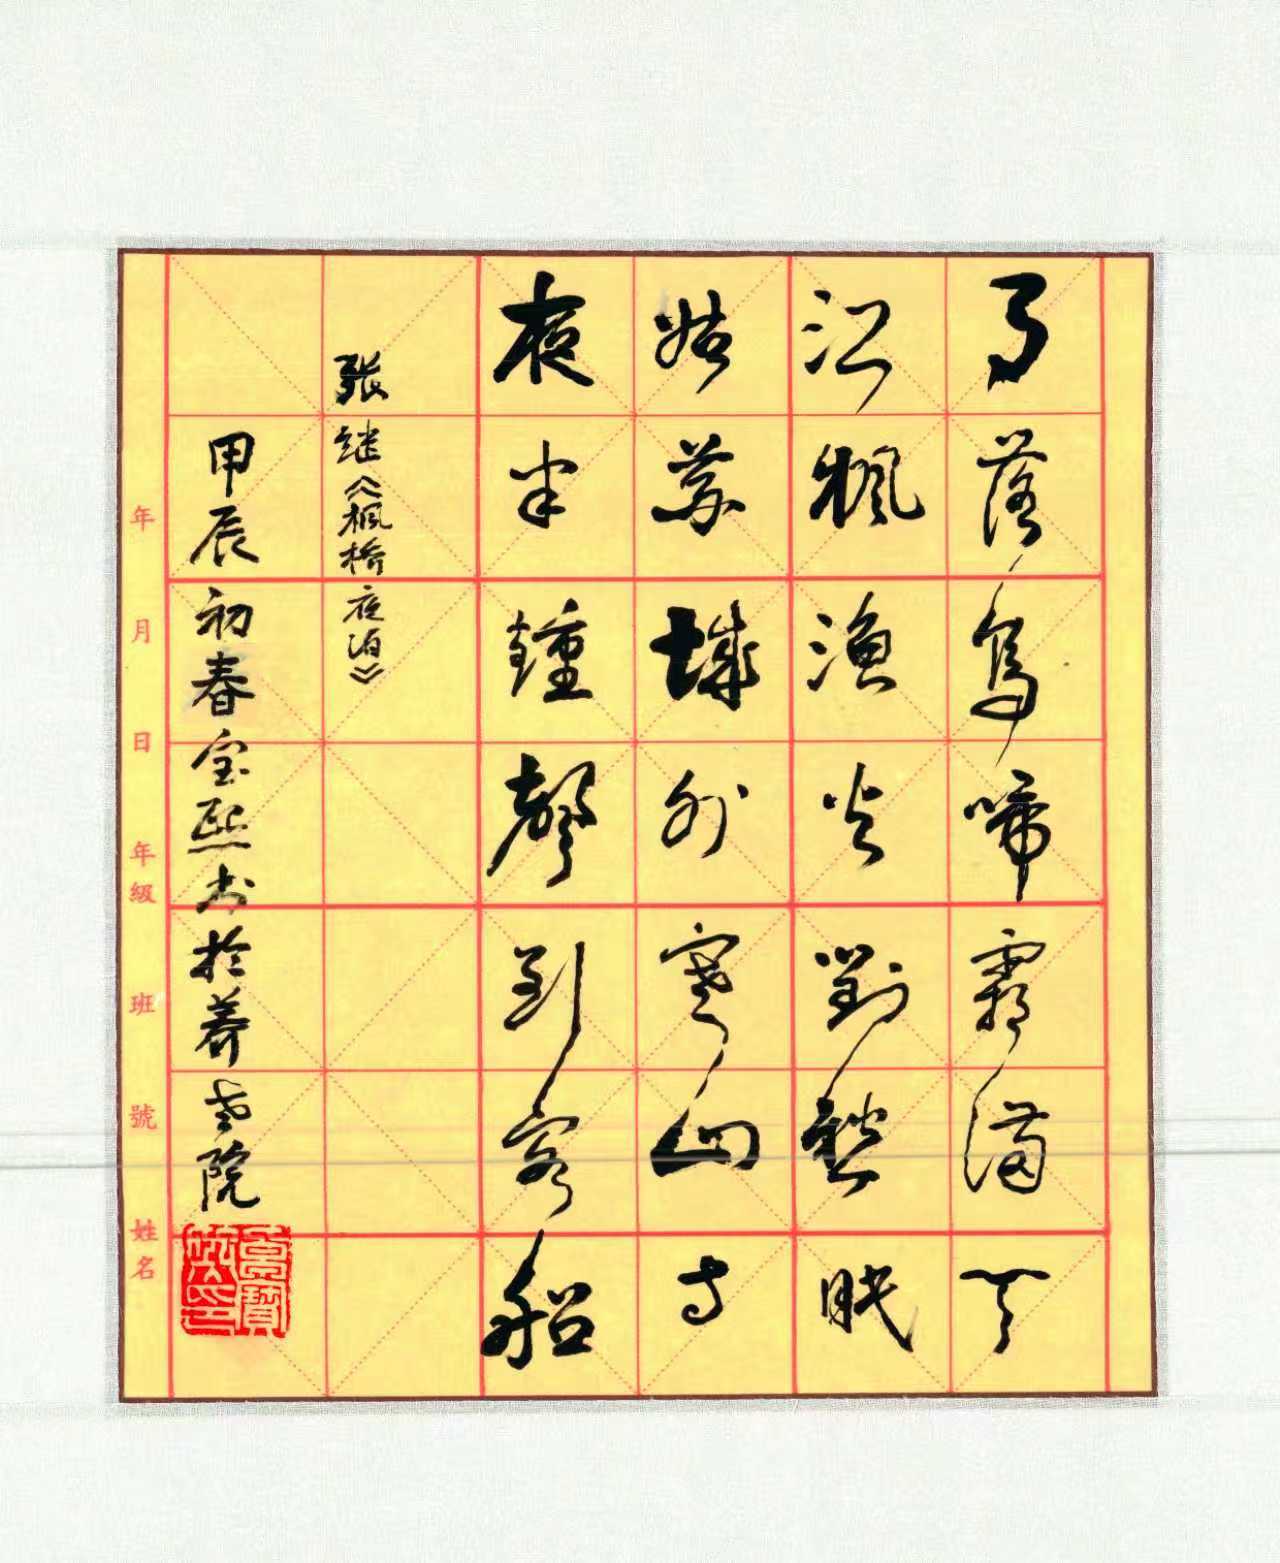 月落烏啼霜滿天
江楓漁火對愁眠
姑蘇城外寒山寺
夜半鐘聲到客船
張继《楓橋夜泊》
甲辰初春宝熙书於养老院
年 月 日 年級 班 號 姓名